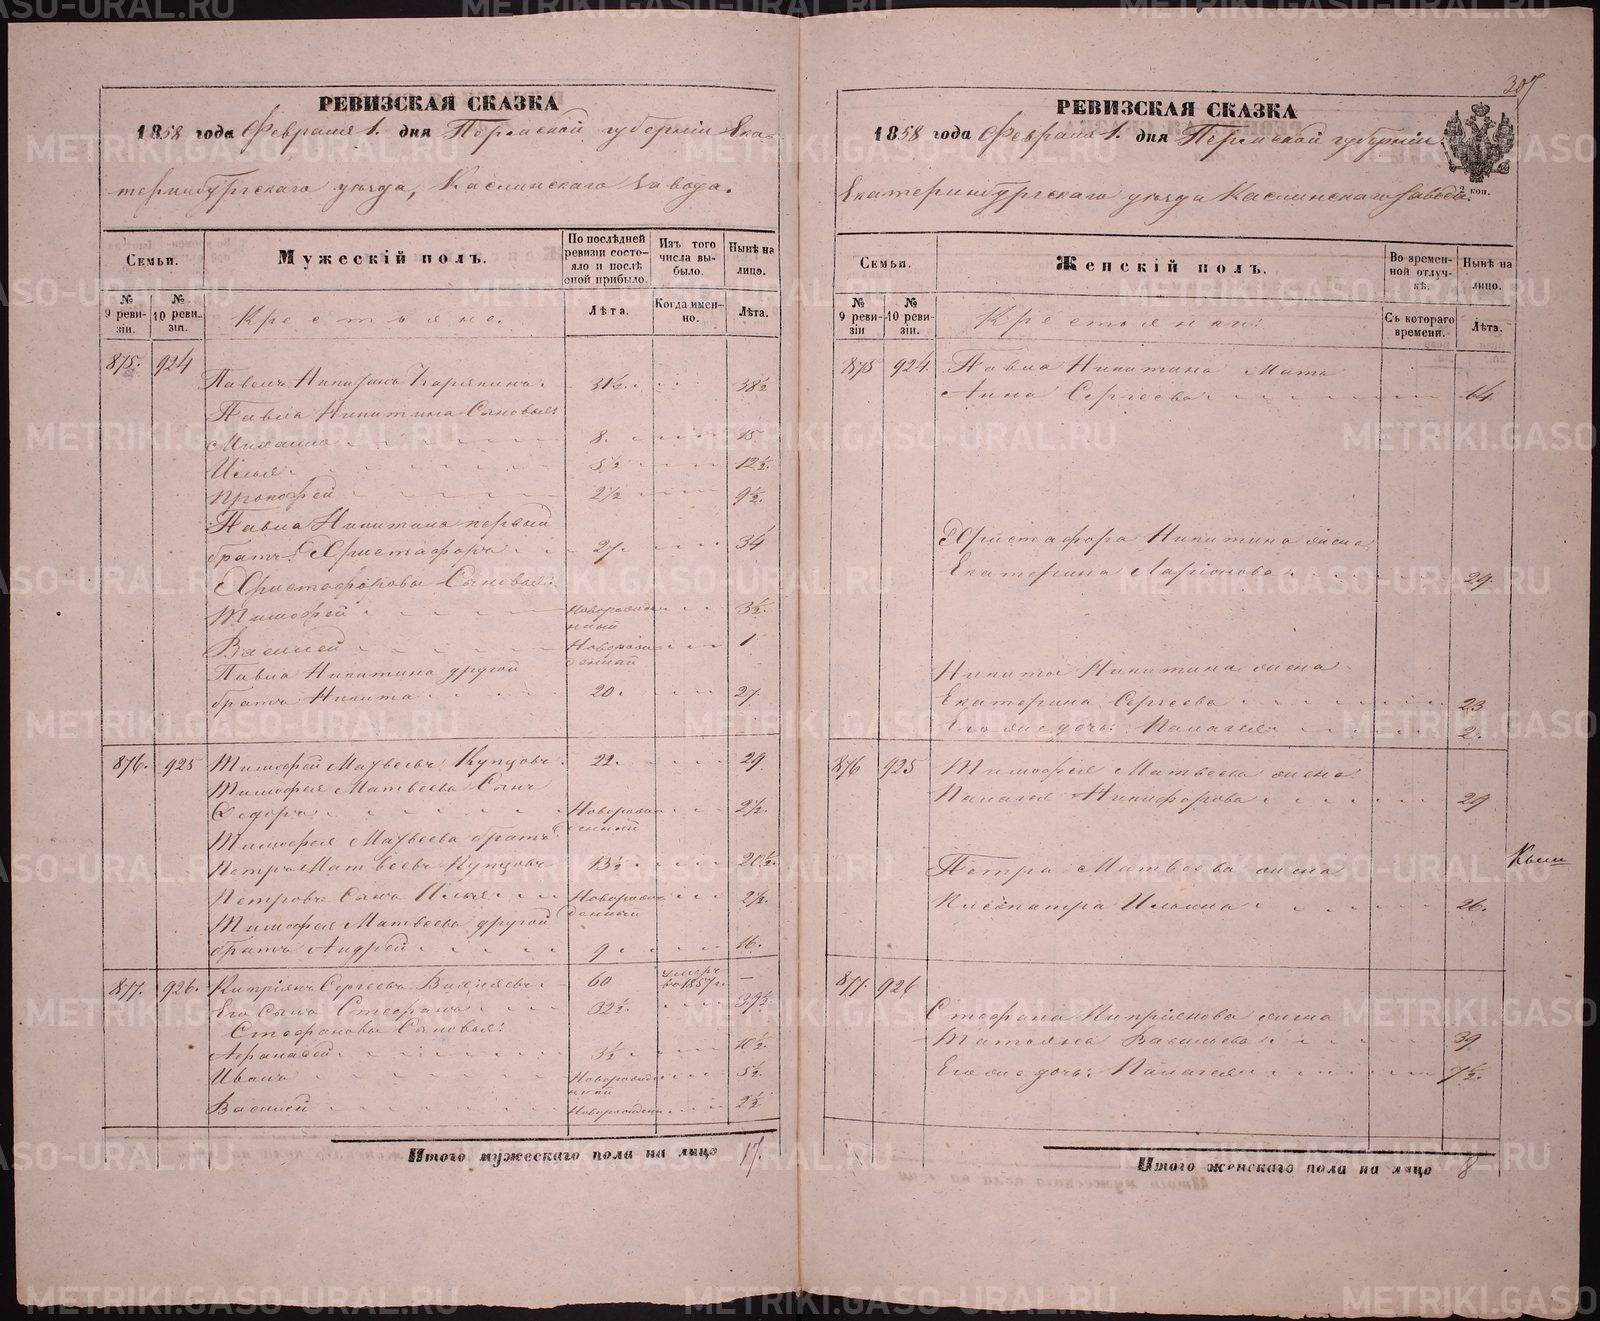 РЕВИЗСКАЯ СКАЗКА
1858 года Февраля 1. дня Пермской губернiи Ека-
теринбургскаго уѣзда, Каслинскаго завода.
Семьи.
Мужескiй полъ.
По послѣдней ревизiи состояло и послѣ оной прибыло.
Изъ того числа выбыло.
Нынѣ на лицо.
№ 9 ревизiи.
№ 10 ревизiи.
Крестьяне.
Лѣта.
Когда именно.
Лѣта.
875. 924
Павелъ Никитинъ 31½. 38½
Павла Никитина Сыновья:
Михаило 8. 15
Илья 5½ 12½.
Прокофей 2½ 9½.
Павла Никитина первый
братъ: Христофоръ 27. 34
Христофоровы Сыновья:
Тимофей новорожденный 3½.
Василей Новорожденный 1
Павла Никитина другой
братъ Никита 20. 27.
876. 925 Тимофей Матвеевъ Купцовъ 22. 29
Тимофея Матвеева Сынъ
Федоръ Новорожденный 2½.
Тимофея Матвеева братъ
Петръ Матвеевъ Купцовъ 13½ 20½.
Петровъ Сынъ Илья Новорожденный 2½.
Тимофея Матвеева другой
братъ Андрей 9. 16.
877. 926. Киприянъ Сергеевъ 60 умеръ въ 1857 г. —
Его Сынъ Стефанъ 32½. 39½
Стефановы Сыновья:
Афанасей 3½ 10½
Иванъ Новорожденный 5½
Василей Новорожденный 2½
Итого мужескаго пола на лицо 17.
307
РЕВИЗСКАЯ СКАЗКА
1858 года Февраля 1. дня Пермской губернiи
Екатеринбургскаго уѣзда Каслинскаго завода.
2 коп.
Семьи.
Женскiй полъ.
Во временной отлучкѣ.
Нынѣ на лицо.
№ 9 ревизiи
№ 10 ревизiи.
Крестьянки:
Съ котораго времени.
Лѣта.
875 924. Павла Никитина Мать
Анна Сергеева 64
Христофора Никитина жена
Екатерина Ларiонова 29.
Никиты Никитина жена
Екатерина Сергеева 23
Его же дочь: Палагея 2.
876 925 Тимофея Матвеева жена
Палагея Никифорова 29
Петра Матвеева жена
Клеопатра Ильина 26.
877 926
Стефана Киприянова жена
Татьяна Васильева 39
Его же дочь: Палагея 7½.
Итого женскаго пола на лицо 8
METRIKI.GASO-URAL.RU